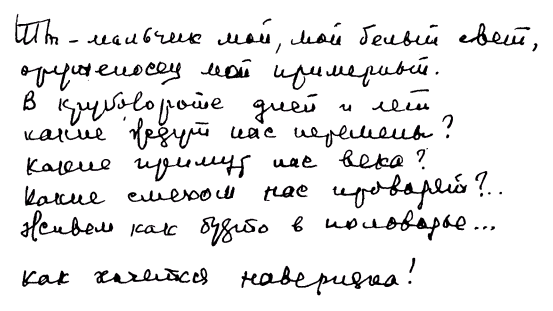 Ты - мальчик мой, мой белый свет,
оруженосец мой примерный.
В круговороте дней и лет
какие ждут нас перемены?
Какие примут нас века?
Какие смехом нас проводят?..
Живем как будто в половодье...
как хочется наверняка!